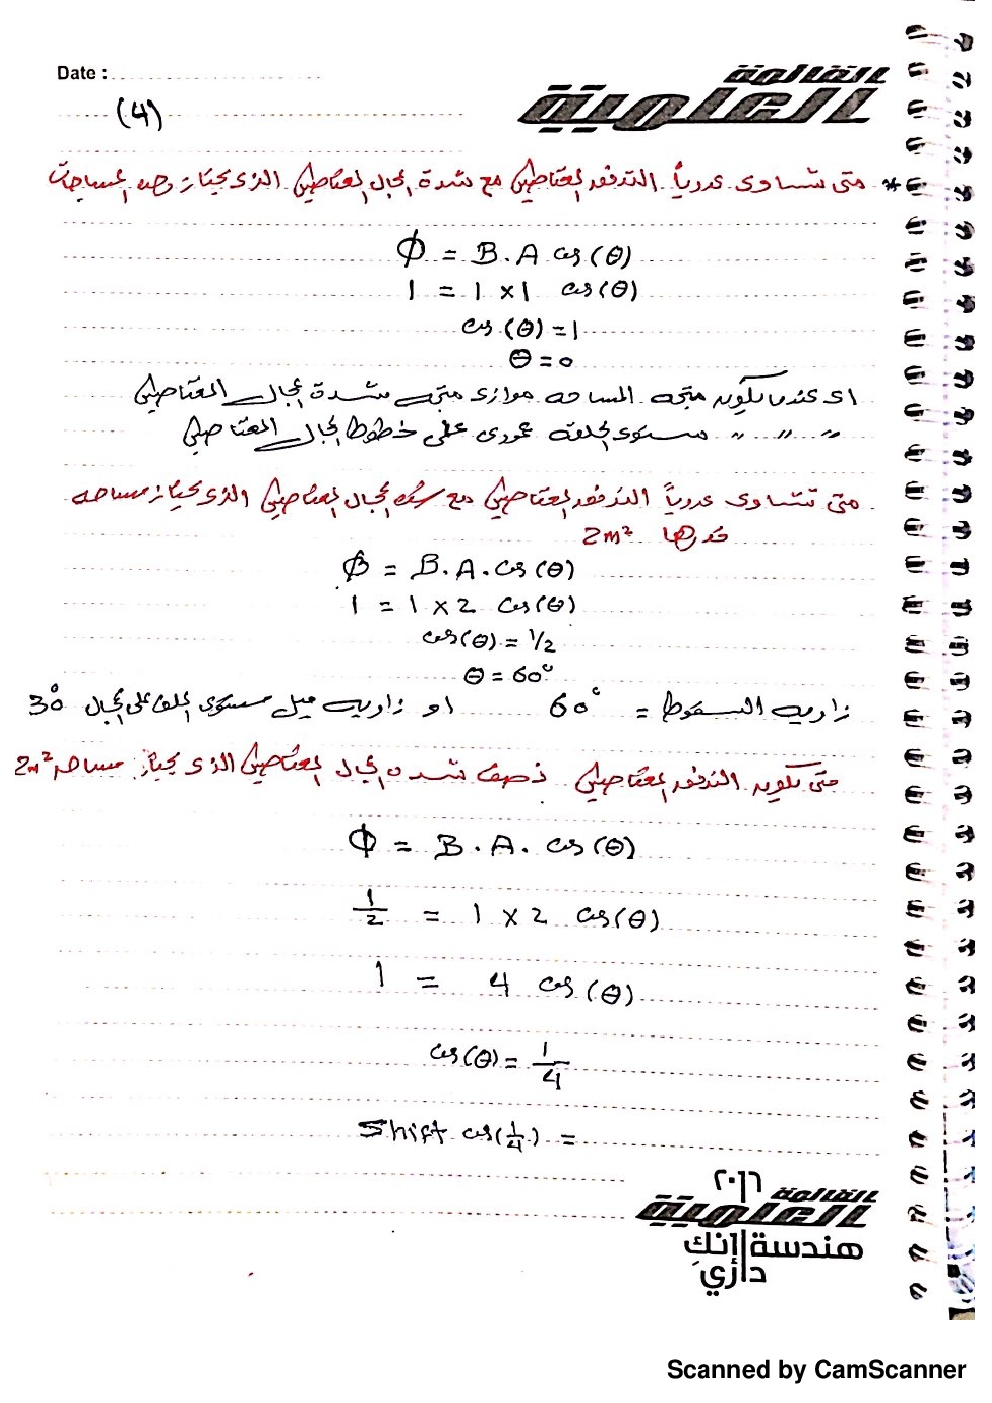 Date :
(4)
القائمة
العلمية
* متى تتساوى عددياً التدفق المغناطيسي مع شدة المجال المغناطيسي الذى يجتاز وحدة المساحات
Φ = B.A cos(θ)
1 = 1 × 1 cos(θ)
cos(θ) = 1
θ = 0
اى عندما يكون متجه المساحه موازى متجه شدة المجال المغناطيسي
〃 〃 〃 مستوى الحلقه عمودى على خطوط المجال المغناطيسي
متى تتساوى عددياً التدفق المغناطيسي مع شدة المجال المغناطيسي الذى يجتاز مساحه
قدرها 2m²
Φ = B.A.cos(θ)
1 = 1 × 2 cos(θ)
cos(θ) = 1/2
θ = 60°
زاويه السقوط = 60° او زاويه ميل مستوى الملف على المجال 30°
متى يكون التدفق المغناطيسي نصف شده المجال المغناطيسي الذى يجتاز مساحه 2m²
Φ = B.A.cos(θ)
1/2 = 1 × 2 cos(θ)
1 = 4 cos(θ)
cos(θ) = 1/4
Shift cos(1/4) =
٢٠١٦
القائمة
العلمية
هندسة إنك
دازي
Scanned by CamScanner